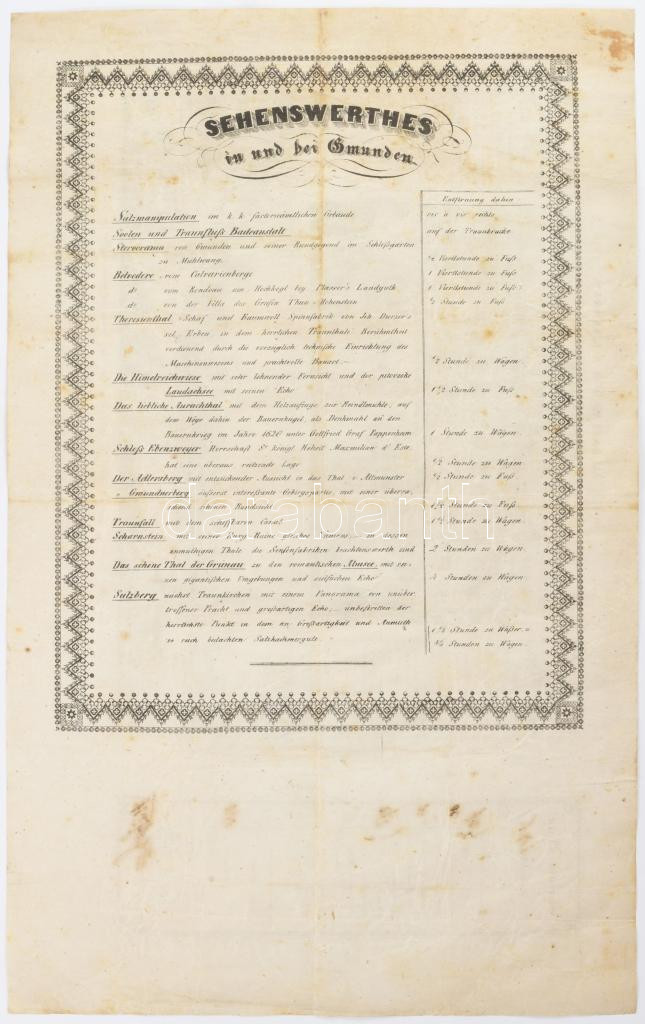 SEHENSWERTHES
in und bei Gmunden.
Entfernung dahin
Salzmanipulation im k. k. salzoberamtlichen Gebäude vis a vis rechts
Soolen und Traunfluß Badeanstalt auf der Traunbrücke
Stereorama von Gmunden und seiner Rundgegend im Schloßgarten
zu Mühlwang. ½ Viertlstunde zu Fuß
Belvedere vom Calvarienberge 1 Viertlstunde zu Fuß
dº vom Rondeau am Hochkogl bey Plasser's Landguth 1 Viertlstunde zu Fuß
dº von der Villa des Grafen Thun Hohenstein ½ Stunde zu Fuß
Theresienthal Schaf und Baumwoll Spinnfabrik von Joh
sel. Erben in dem herrlichen Traunthale Berühmtheit
verdienend durch die vorzüglich technische Einrichtung des
Maschinenwesens und prachtvolle Bauart. ½ Stunde zu Wägen.
Die Himelreichwiese mit sehr lohnender Fernsicht und der pitoreske
Laudachsee mit seinen Echo 1 ½ Stunde zu Fuß
Das liebliche Aurachthal mit dem Holzaufzuge zur Reindlmühle, auf
dem Wege dahin der Bauernhügel, als Denkmahl an den
Bauernkrieg im Jahre 1626 unter Gottfried Graf Pappenheim 1 Stunde zu Wägen.
Schloß Ebenzweyer Herrschaft Sr königl. Hoheit Maximilian d' Este.
hat eine überaus reitzende Lage ½ Stunde zu Wägen
Der Adlersberg mit entzückender Aussicht in das Thal v Altmünster ½ Stunde zu Fuß.
Gmundnerberg äußerst interessante Gebirgsparthie, mit einer überra,
schend schönen Rundsicht 1 ½ Stunde zu Fuß
Traunfall mit dem schifbaren Canal 1 ½ Stunde zu Wägen.
Scharnstein mit seiner Burg-Ruine gleiches Namens in dessen
anmuthigen Thale die Sensenfabriken beachtenswerth sind 2 Stunden zu Wägen.
Das schöne Thal der Grünau zu den romantischen Almsee, mit sei,
nen gigantischen Umgebungen und seltschen Echo Stunden zu Wägen
Salzberg nächst Traunkirchen mit einem Panorama von unüber
troffner Pracht und großartigen Echo; unbestritten der
herrlichste Punkt in dem an Großartigkeit und Anmuth 1 ½ Stunde zu Wäßer. u.
so reich bedachten Salzkammergute ¾ Stunden zu Wägen.
darabanth